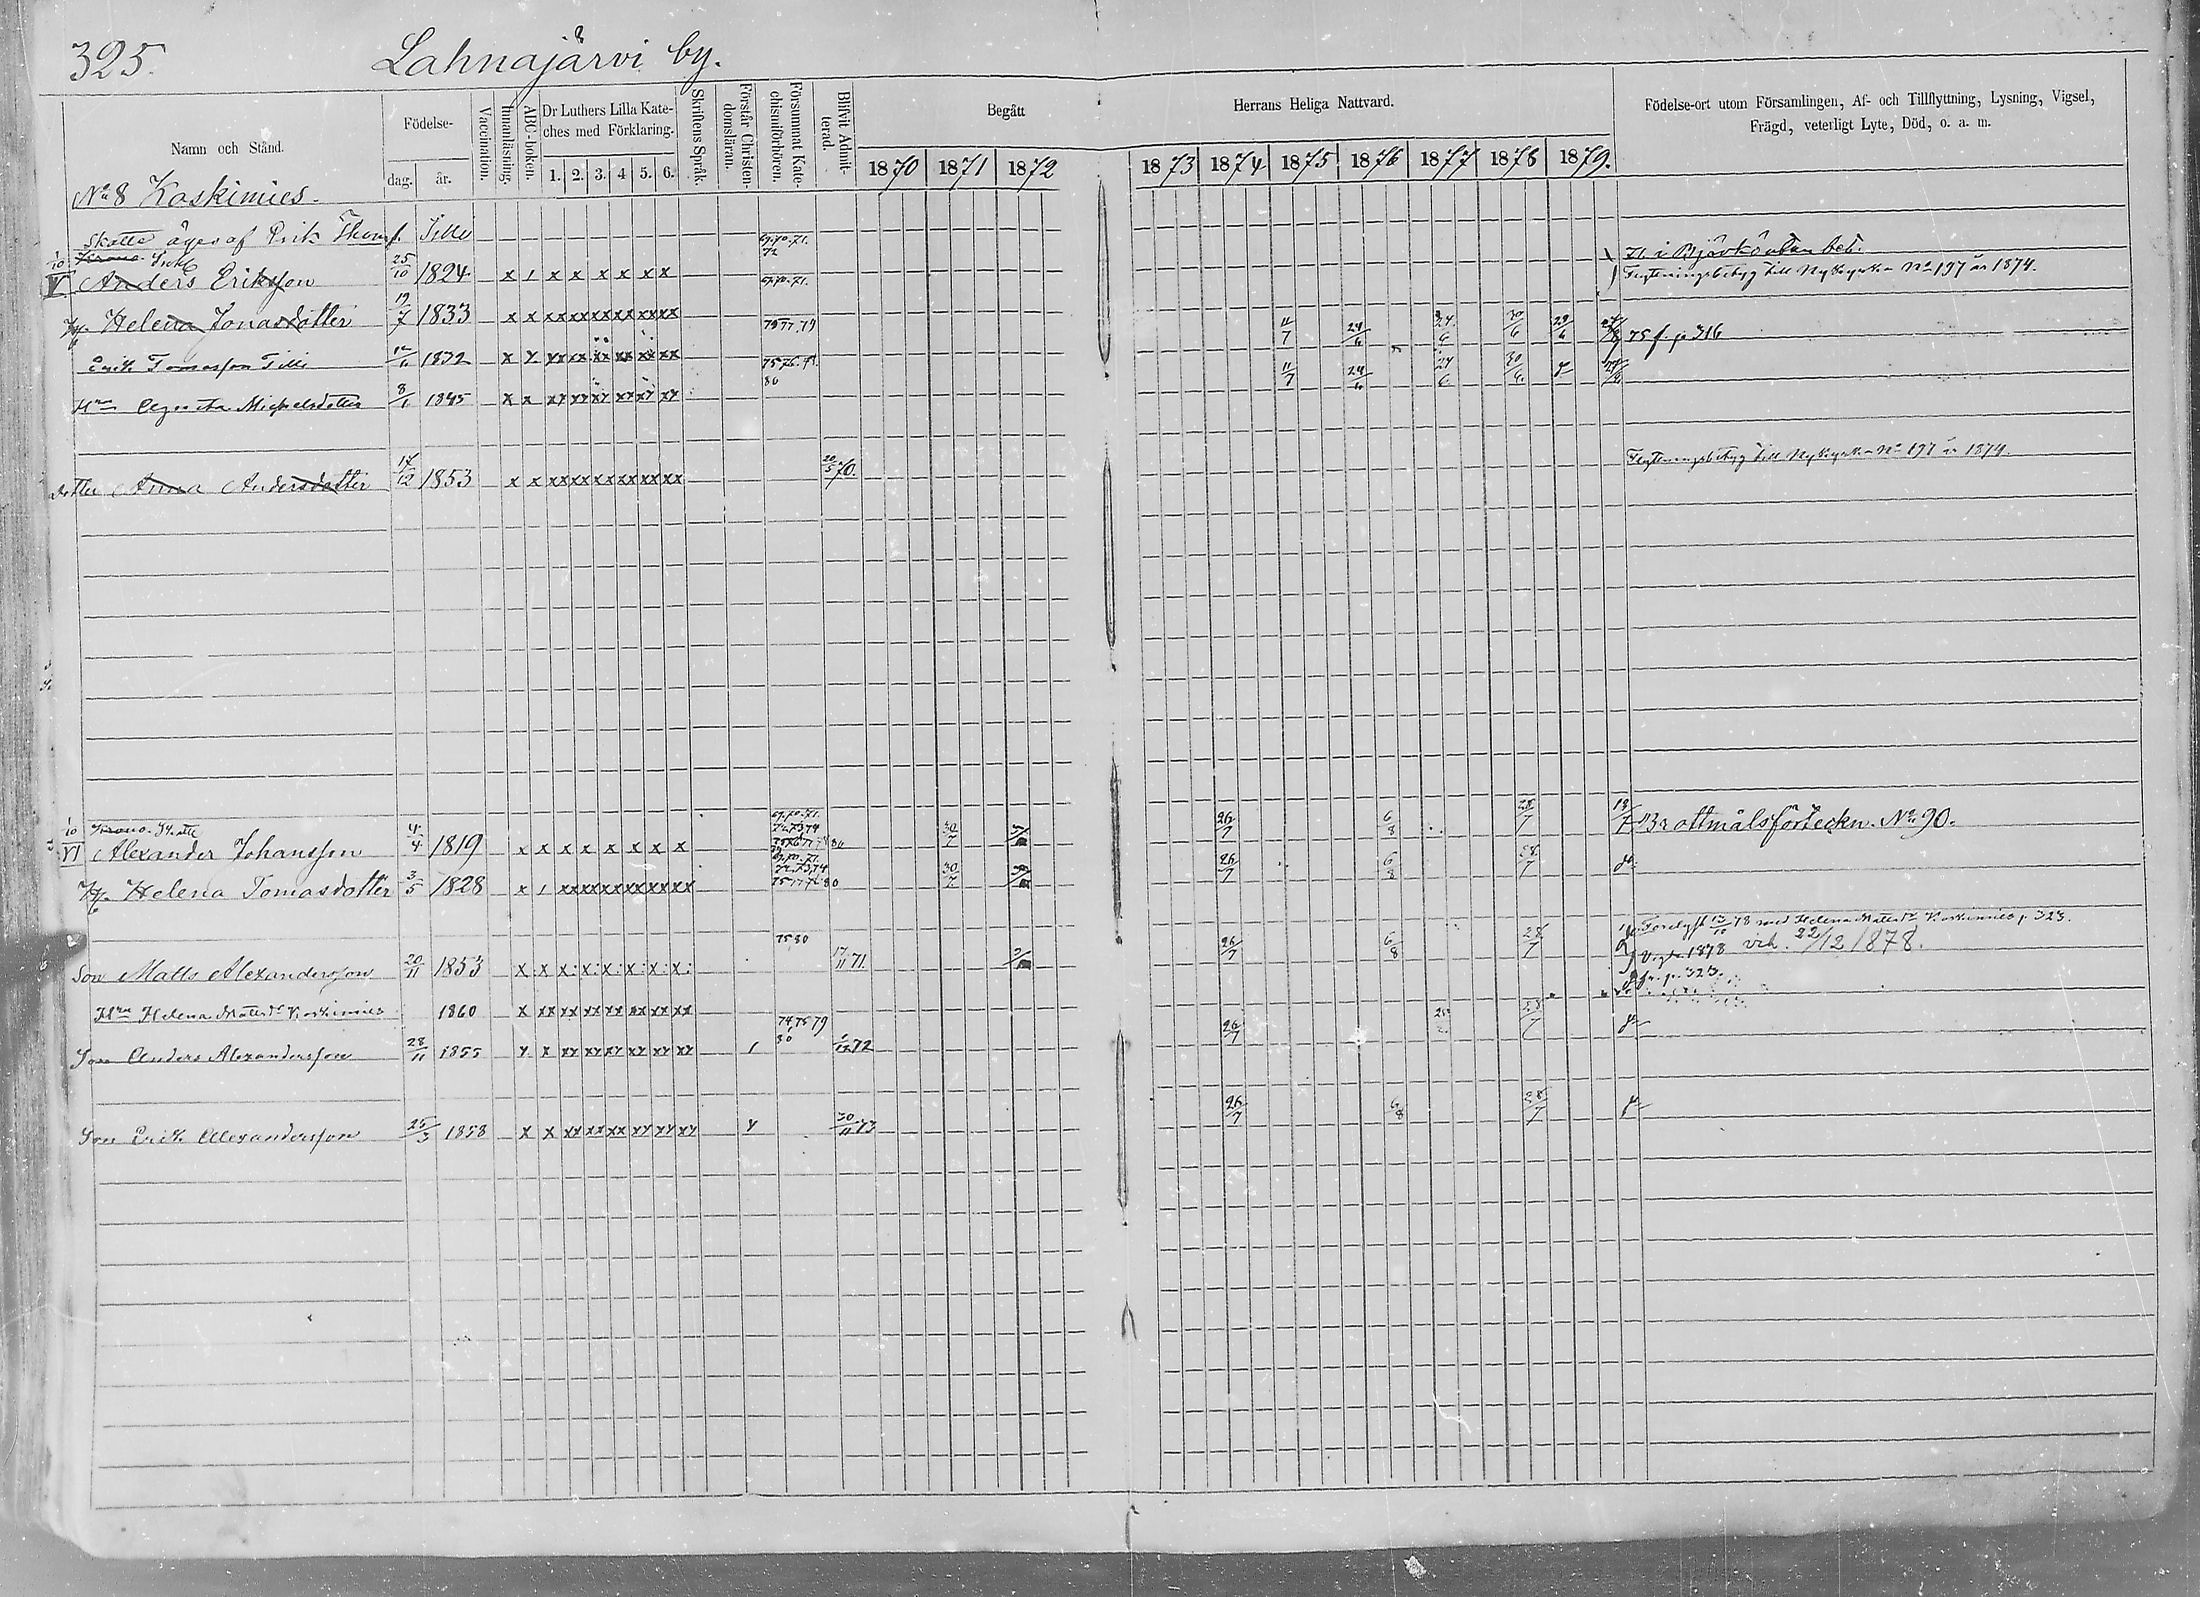 325. Lahnajärvi by.
Namn och Stånd.
Födelse-
dag. år.
Vaccination.
Innanläsning.
ABC-boken.
Dr Luthers Lilla Kate-
ches med Förklaring.
1. 2. 3. 4 5. 6.
Skriftens Språk.
Förstår Christen-
domsläran.
Försummat Kate-
chismiförhören.
Blifvit Admit-
terad.
Begått Herrans Heliga Nattvard.
1870 1871 1872 1873 1874 1875 1876 1877 1878 1879.
Födelse-ort utom Församlingen, Af- och Tillflyttning, Lysning, Vigsel,
Frägd, veterligt Lyte, Död, o. a. m.
No 8 Koskimies.
Skatte äges af Erik Thomf. Tilli
69.70.71.
72
1/10 V Anders Eriksson 25/10 1824 x 1 x x x x x x 69.70.71.
Flyttningsbetyg till Nykyrka No 197 år 1874.
Helena Jonasdotter 19/7 1833 x x xx xx xx xx xx xx
Erik Tomasson Tilli 1832 75.77.79 11/7 24/6 24/6 30/6 29/6 75 f. p 316
Hru Michelsdotter 8/1 1845 75 76. 80 11/7 24/6 24/6 30/6
Dotter Anna Andersdotter 17/12 1853 x x xx xx xx xx xx xx 20/5 70. Flyttningsbetyg till Nykyrka No 197 år 1874.
1/10 VI Krono Skatte
Alexander Johansson 4/4 1819 x x x x x x x x 69.70.71. 72 73 74 30/7 26/7 6/8 28/7 13/7 Brottmålsförteckn. No 90.
Helena Tomasdotter 3/5 1828 x 1 xx xx xx xx xx xx 69.70.71. 72.73.74 30/7 26/7 6/8 28/7
Son Matts Alexandersson 20/11 1853 75 80 17/11 71. 26/7 6/8 28/7 78 med Helena Mattsdr Koskimies p. 323.
1878 vid. 22/12 1878.
Hru Helena Mattsdr Koskimies 1860 x xx xx xx xx xx xx fr. p. 323.
Son Anders Alexandersson 28/11 1855 x x xx xx xx xx xx xx 1 74,75 79 80 72 26/7 28/7
Son Erik Alexandersson 25/3 1858 x x xx xx xx xx xx xx 30/11 73 26/7 6/8 28/7